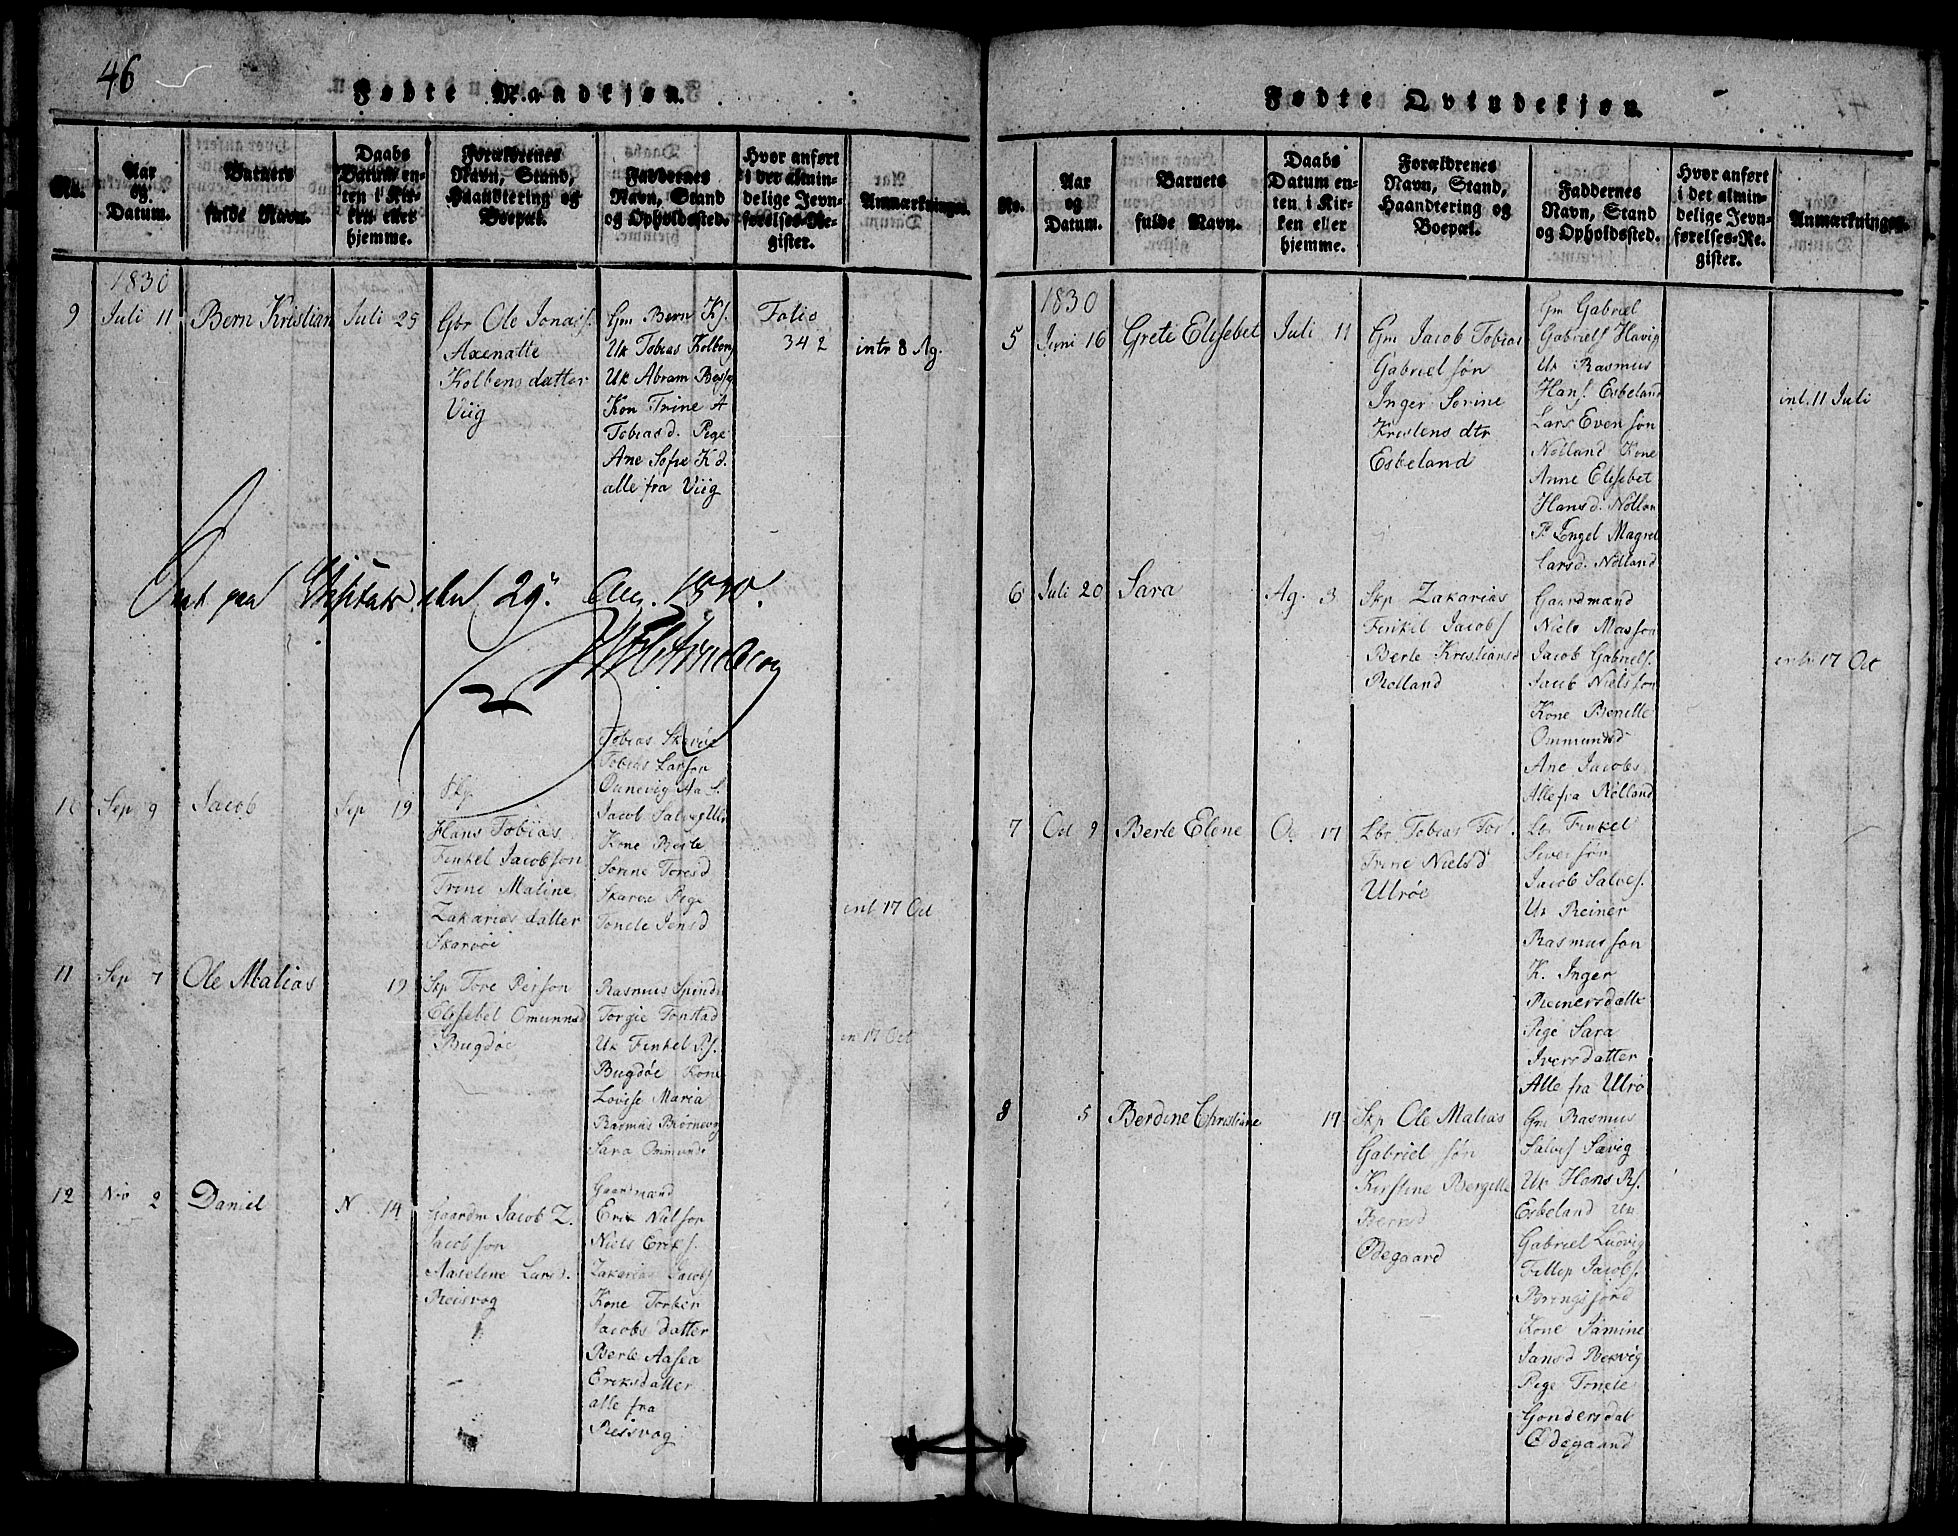 46
Fødte Mandkjøn.
No.
Aar og Datum.
Barnets fulde Navn.
Daabs Datum enten i Kirken eller hjemme.
Forældrenes Navn, Stand, Haandtering og Boepæl.
Faddernes Navn, Stand og Opholdssted.
Hvor anført i der almindelige Jevnførelses-Register.
Anmærkninger.
1830
9 Juli 11 Bern Kristian Juli 25
Gbr Ole Jonais.
Axenatte
Kolbens datter
Viig
Gm Bern Ks.
Uk Tobias Kolbens
Uk Abram
Kon Trine A
Tobiasd. Pige
Ane Sofie Kd.
alle fra Viig
Folio
342
intr 8 Ag.
paa Visitats den 29. Aug. 1830.
10 Sep 9 Jacob Sep 19
Skp
Hans Tobias
Finkel Jacobson
Trine Maline
Zakarias datter
Skarvøe
Tobias Skarvøe
Tobias Larson
Jacob Salves Ulr
Kone Berle
Sorine Toresd
Skarvøe Pige
Tonele Jensd
int 17 Oct
11 Sep 7 Ole Matias 19
Skp Tore Person
Elisebet Omunnsd
Bugdøe
Rasmus Spindn
Torgie Tonstad
Uk Finkel Ps.
Bugdøe Kone
Lovise Maria
Rasmus Biørnevog
Sara Ommunds
in 17 Oct
12 Nov 2 Daniel N. 14
Gaardm Jacob Z.
Jacobsøn
Aaseline Larsd.
Reisvog
Gaardmænd
Erik Nielson
Niels Eriks.
Zakarias Jacobs
Kone Torber
Jacobs datter
Berle Aasea
Eriksdatter
alle fra
Reisvog
Fødte Qvindekjøn.
No.
Aar og Datum.
Barnets fulde Navn.
Daabs Datum enten i Kirken eller hjemme.
Forældrenes Navn, Stand, Haandtering og Boepæl.
Faddernes Navn, Stand og Opholdssted.
Hvor anført i det almindelige Jevnførelses-Re. gister.
Anmærkninger.
1830
5 Juni 16 Grete Elisebet Juli 11
Gm Jacob Tobias
Gabrielsøn
Inger Sorine
Kristens dtr
Esbeland
Gm Gabriel
Gabriels Havig
Uk Rasmus
Hans. Esbeland
Lars Evensøn
Nölland Kone
Anne Elisebet
Hansd. Nöllan
P. Engel Magret
Larsd. Nölland
int. 11 Juli
6 Juli 20 Sara Ag. 3
Skp Zakarias
Finkel Jacobs
Berle Kristiansd
Rolland
Gaardmænd
Niels Masson
Jacob Gabriels.
Jacob Nielsson
Kone Benille
Ommundsd
Ane Jacobs
Alle fra Nölland
intr 17 Oct
7 Oct 9 Berle Elene Oc. 17
Lbr. Tobias Tor.
Trine Nielsd
Ulrøe
Lbr Finkel
Siversøn
Jacob Salves.
Uk Reiner
Rasmusson
K. Inger
Reinersdatte
Pige Sara
Iversdatter
Alle fra Ulrø
8 5 Berdine Christiane 17
Skp Ole Matias
Gabrielsøn
Kirstine Bergitte
Bernsd
Ødegaard
Gm Rasmus
Salves Sævig
Uk Hans Rs.
Esbeland Uk
Gabriel Ludvig
Fillip Jacobs.
Kone Samine
Jansd Rekvig
Pige Tonete
Gondersdat
Ødegaard